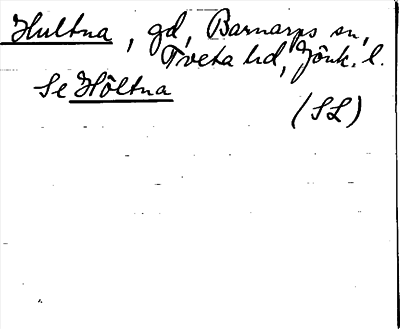 Hultna, gd, Barnarps sn,
Tveta hd, Jönk. l.
Se Hôltna
(SL)